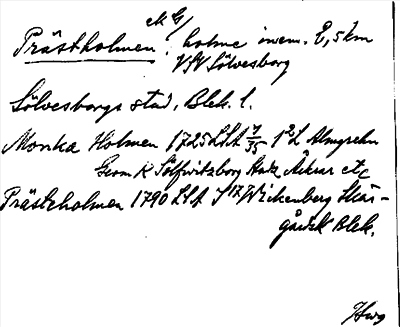 ek G/
Prästholmen, holme inem. 2,5 km
VSV Sölvesborg
Sölvesborgs stad, Blek. l.
Monka Holmen 1725 LSA 7/35 1:2 L Almgrehn
Geom K Sölfwitzborg Stadz Åkrar etc
Prästeholmen 1790 LSA J 17 Wickenberg Skär-
gårdsk Blek.